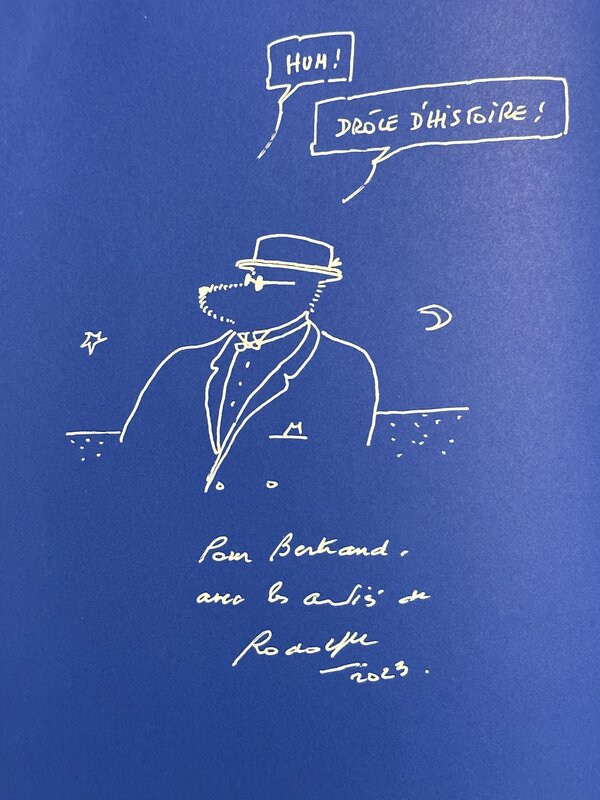 HUM !
DRÔLE D'HISTOIRE !
Pour Bertrand.
avec les amitiés de
Rodolphe
2023.